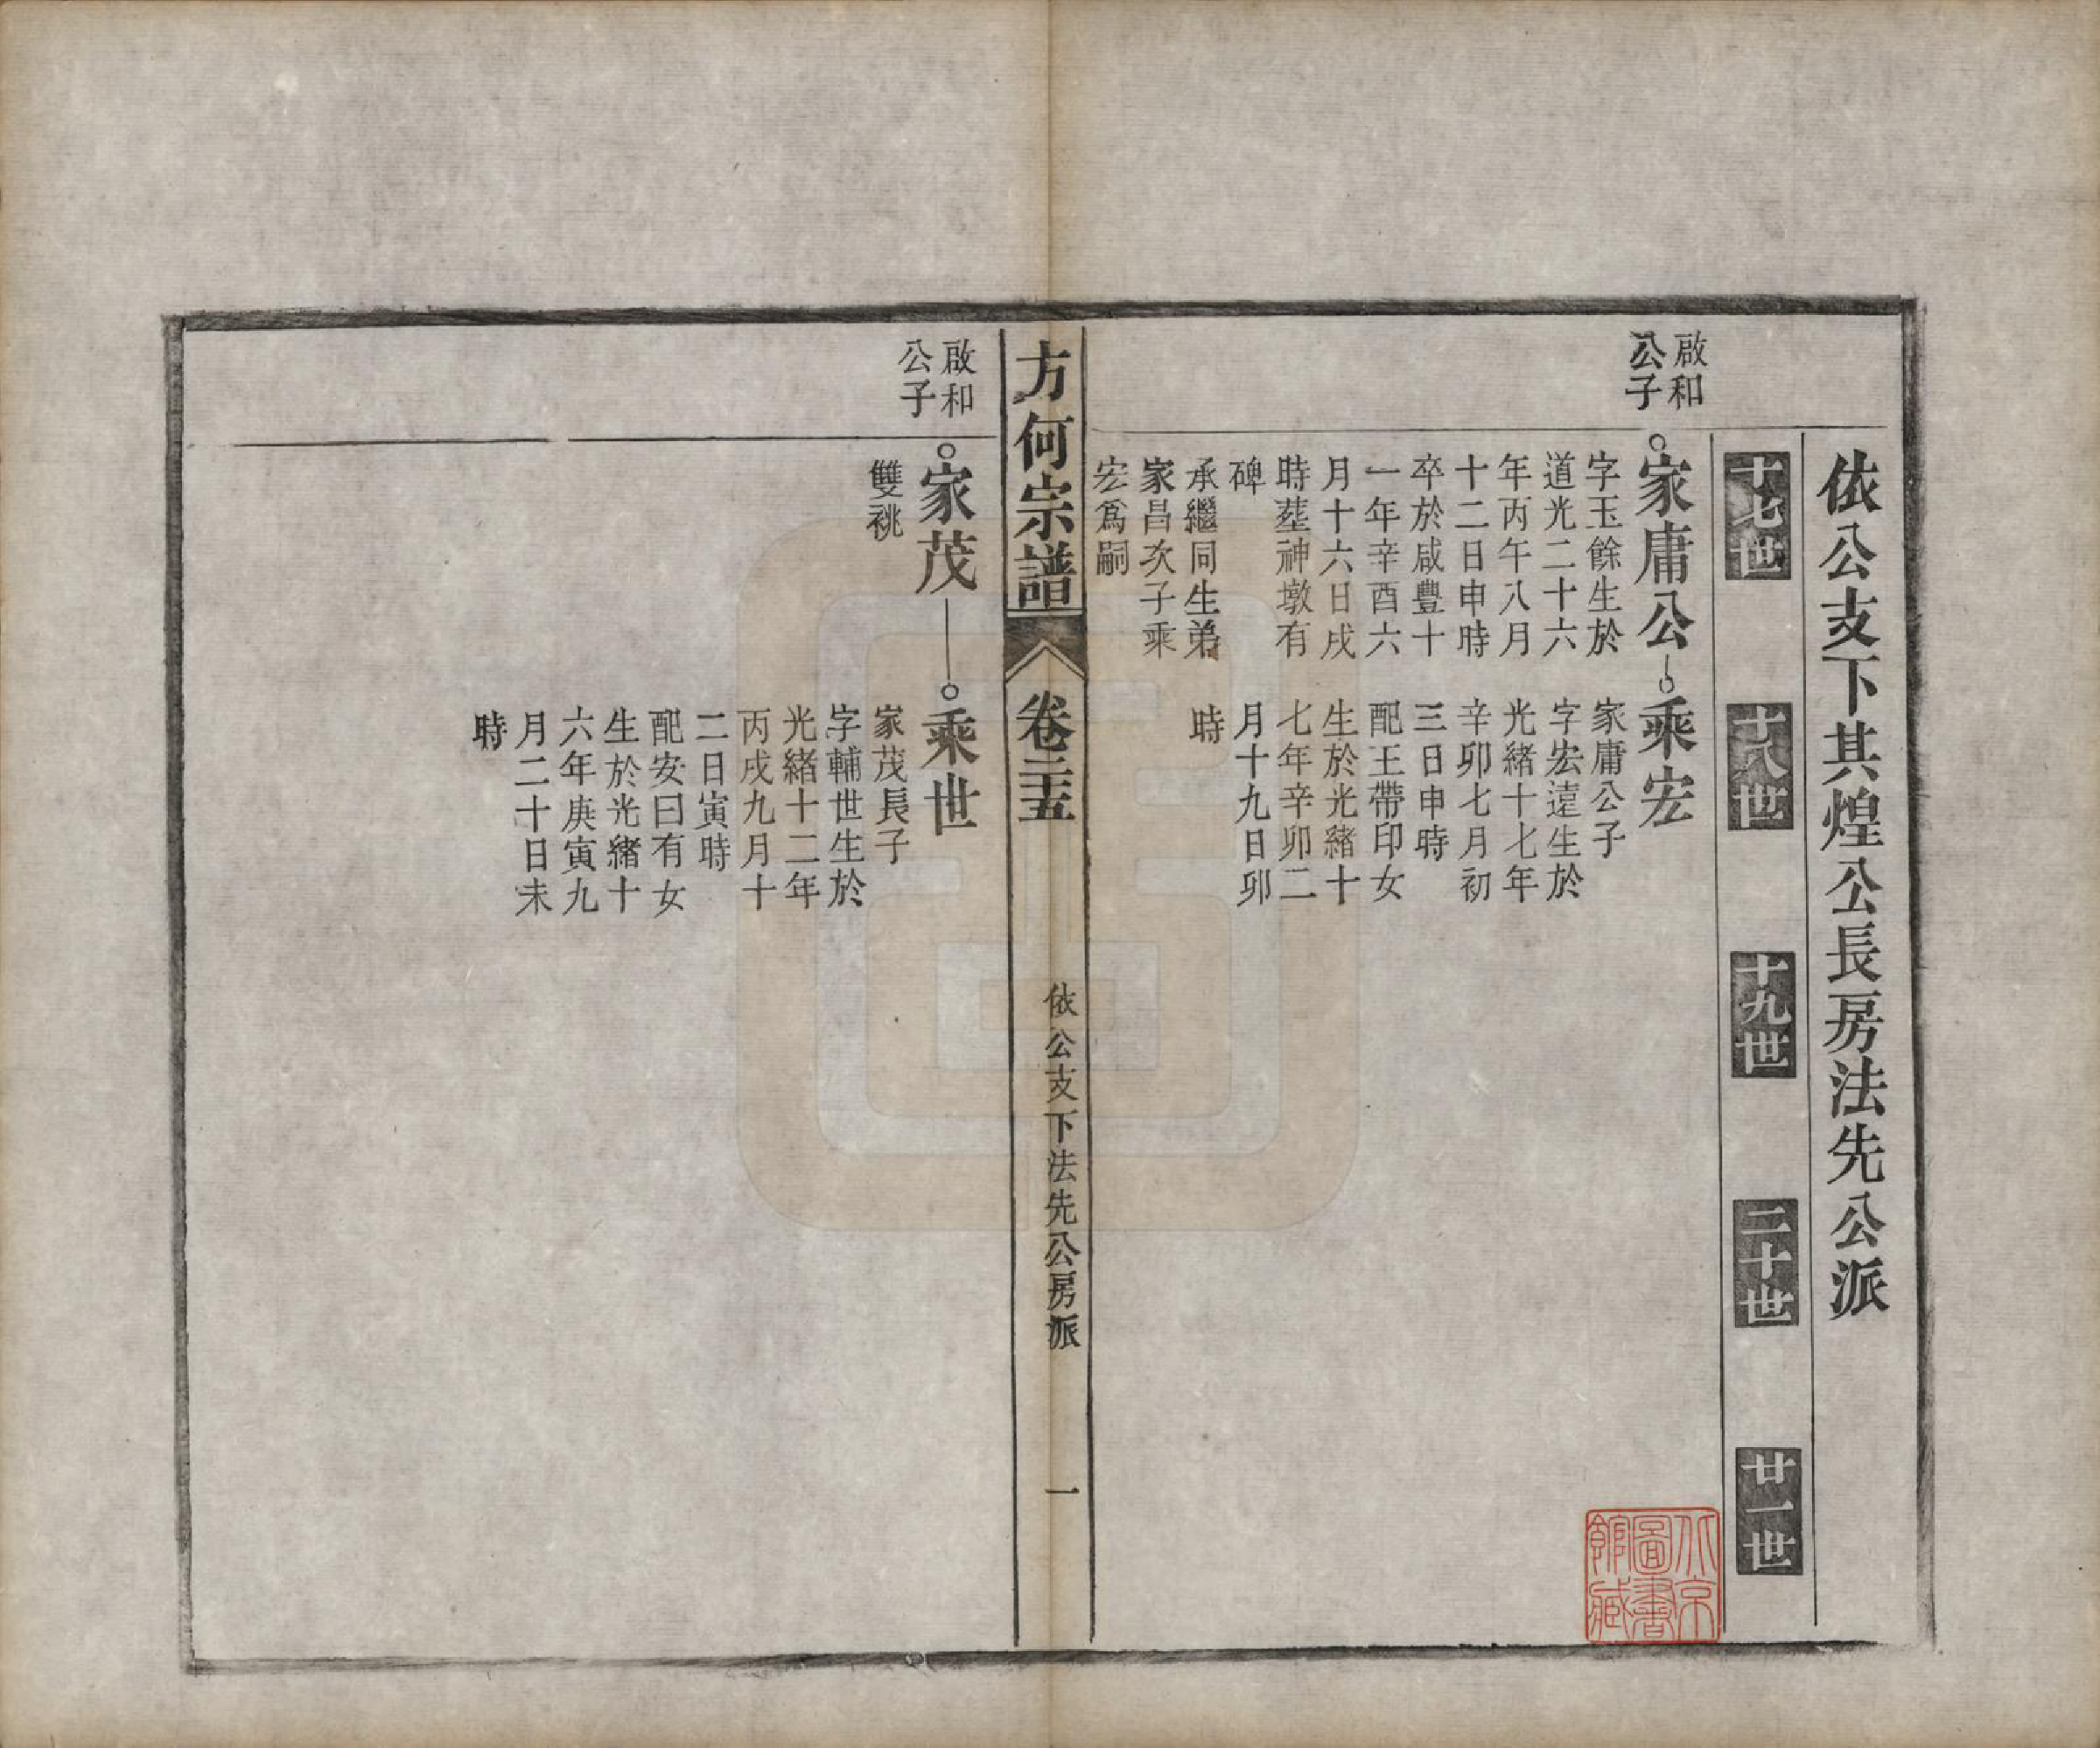 依公支下其煌公長房法先公派
十七世
十八世
十九世
二十世
廿一世
啟和
公子
家庸公
字玉餘生於
道光二十六
年丙午八月
十二日申時
卒於咸豐十
一年辛酉六
月十六日戌
時塟神墩有
碑
承繼同生弟
家昌次子乘
宏爲嗣
乘宏
家庸公子
字宏遠生於
光緒十七年
辛卯七月初
三日申時
配王帶印女
生於光緒十
七年辛卯二
月十九日卯
時
方何宗譜
卷三十五
依公支下法先公房派
一
啟和
公子
家茂
雙祧
乘世
家茂長子
字輔世生於
光緒十二年
丙戌九月十
二日寅時
配安曰有女
生於光緒十
六年庚寅九
月二十日未
時
北京
圖書
館藏